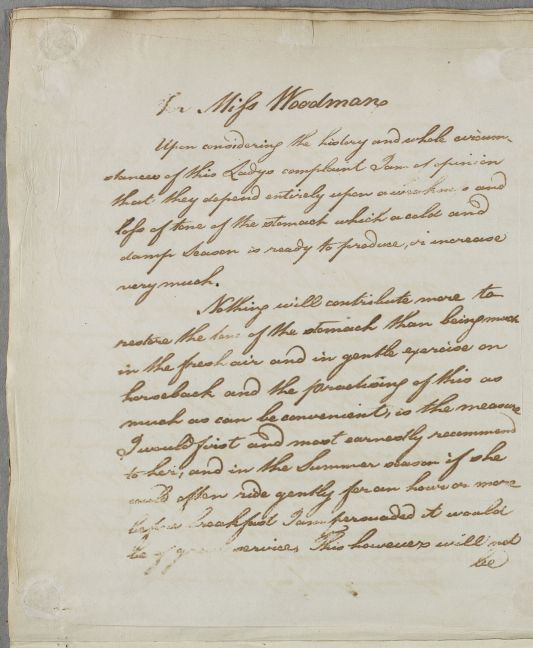 For Miss Woodman
Upon considering the history and whole circum-
stances of this Ladys complaint I am of opinion
that they depend entirely upon a weakness and
loss of tone of the stomach which a cold and
damp season is ready to produce, or increase
very much.
Nothing will contribute more to
restore the tone of the stomach than being much
in the fresh air and in gentle exercise on
horseback and the practising of this as
much as can be convenient, is the measure
I would first and most earnestly recommend
to her, and in the Summer season if she
could often ride gently for an hour or more
before breakfast I am persuaded it would
be of great service. This however will not
be